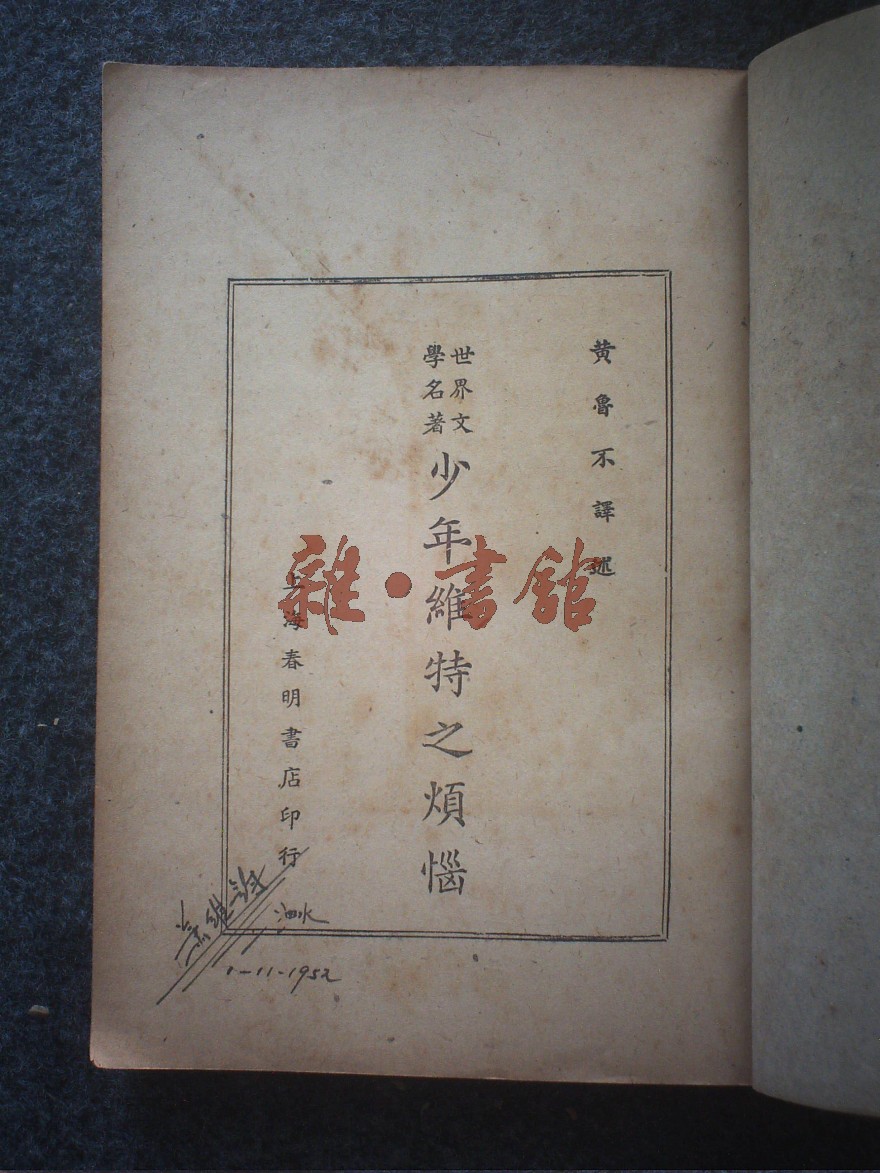 黄魯不譯述
世界文
學名著
少年維特之煩惱
上海春明書店印行
雜·書館
泗水
1-11-1952